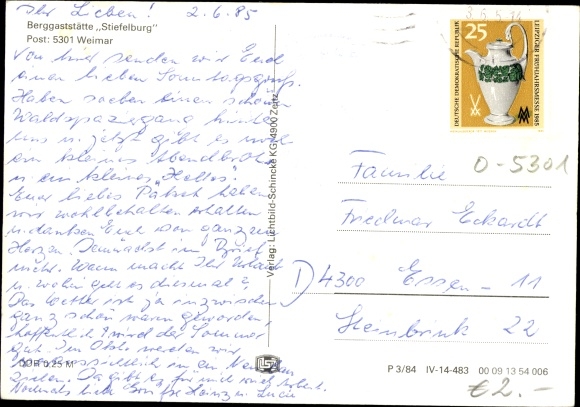 Ihr Lieben! 2.6.85
Berggaststätte „Stiefelburg"
Post: 5301 Weimar
Von hier senden wir Euch
einen lieben Sonntagsgruß.
Haben soeben einen schönen
Waldspaziergang hinter
uns u. jetzt gibt es noch
ein kleines Abendbrot
u. ein kleines "Helles".
Euer liebes Päckch. haben
wir wohlbehalten erhalten
u. danken Euch von ganzem
Herzen. Demnächst im Brief
mehr. Wann macht Ihr Urlaub
u. wohin geht es diesmal?
Das Wetter ist ja inzwischen
ganz schön warm geworden,
hoffentlich wird der Sommer
gut. Im Okt. werden wir
in ein
ziehen. Da gibt es für mich noch Arbeit.
Nochmals liebe Grüße Heinz u. Luzie
DDR 0,25 M
Verlag: Lichtbild-Schincke KG, 4900 Zeitz
25
DEUTSCHE DEMOKRATISCHE REPUBLIK
LEIPZIGER FRÜHJAHRSMESSE 1985
Familie
O-5301
Friedmar Eckardt
D 4300 Essen - 11
Steinbrink 22
P 3/84 IV-14-483 00 09 13 54 006
€ 2.-